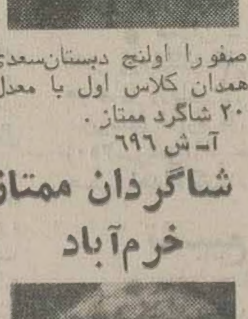 صفورا اولنج دبستان سعدی
همدان کلاس اول با معدل
۲۰ شاگرد ممتاز .
آ‌ـ ش ۶۹۶
شاگردان ممتاز
خرم‌آباد